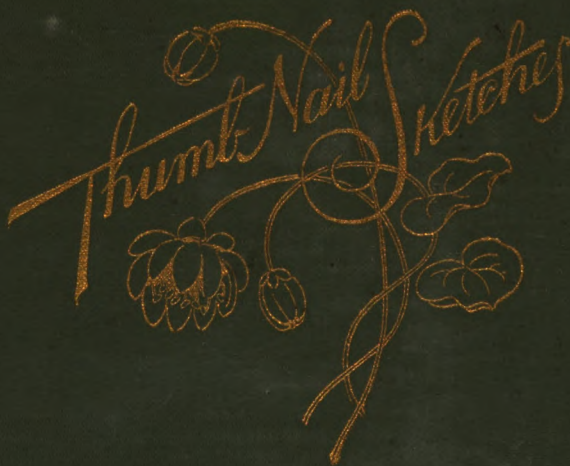 Thumb-Nail Sketches